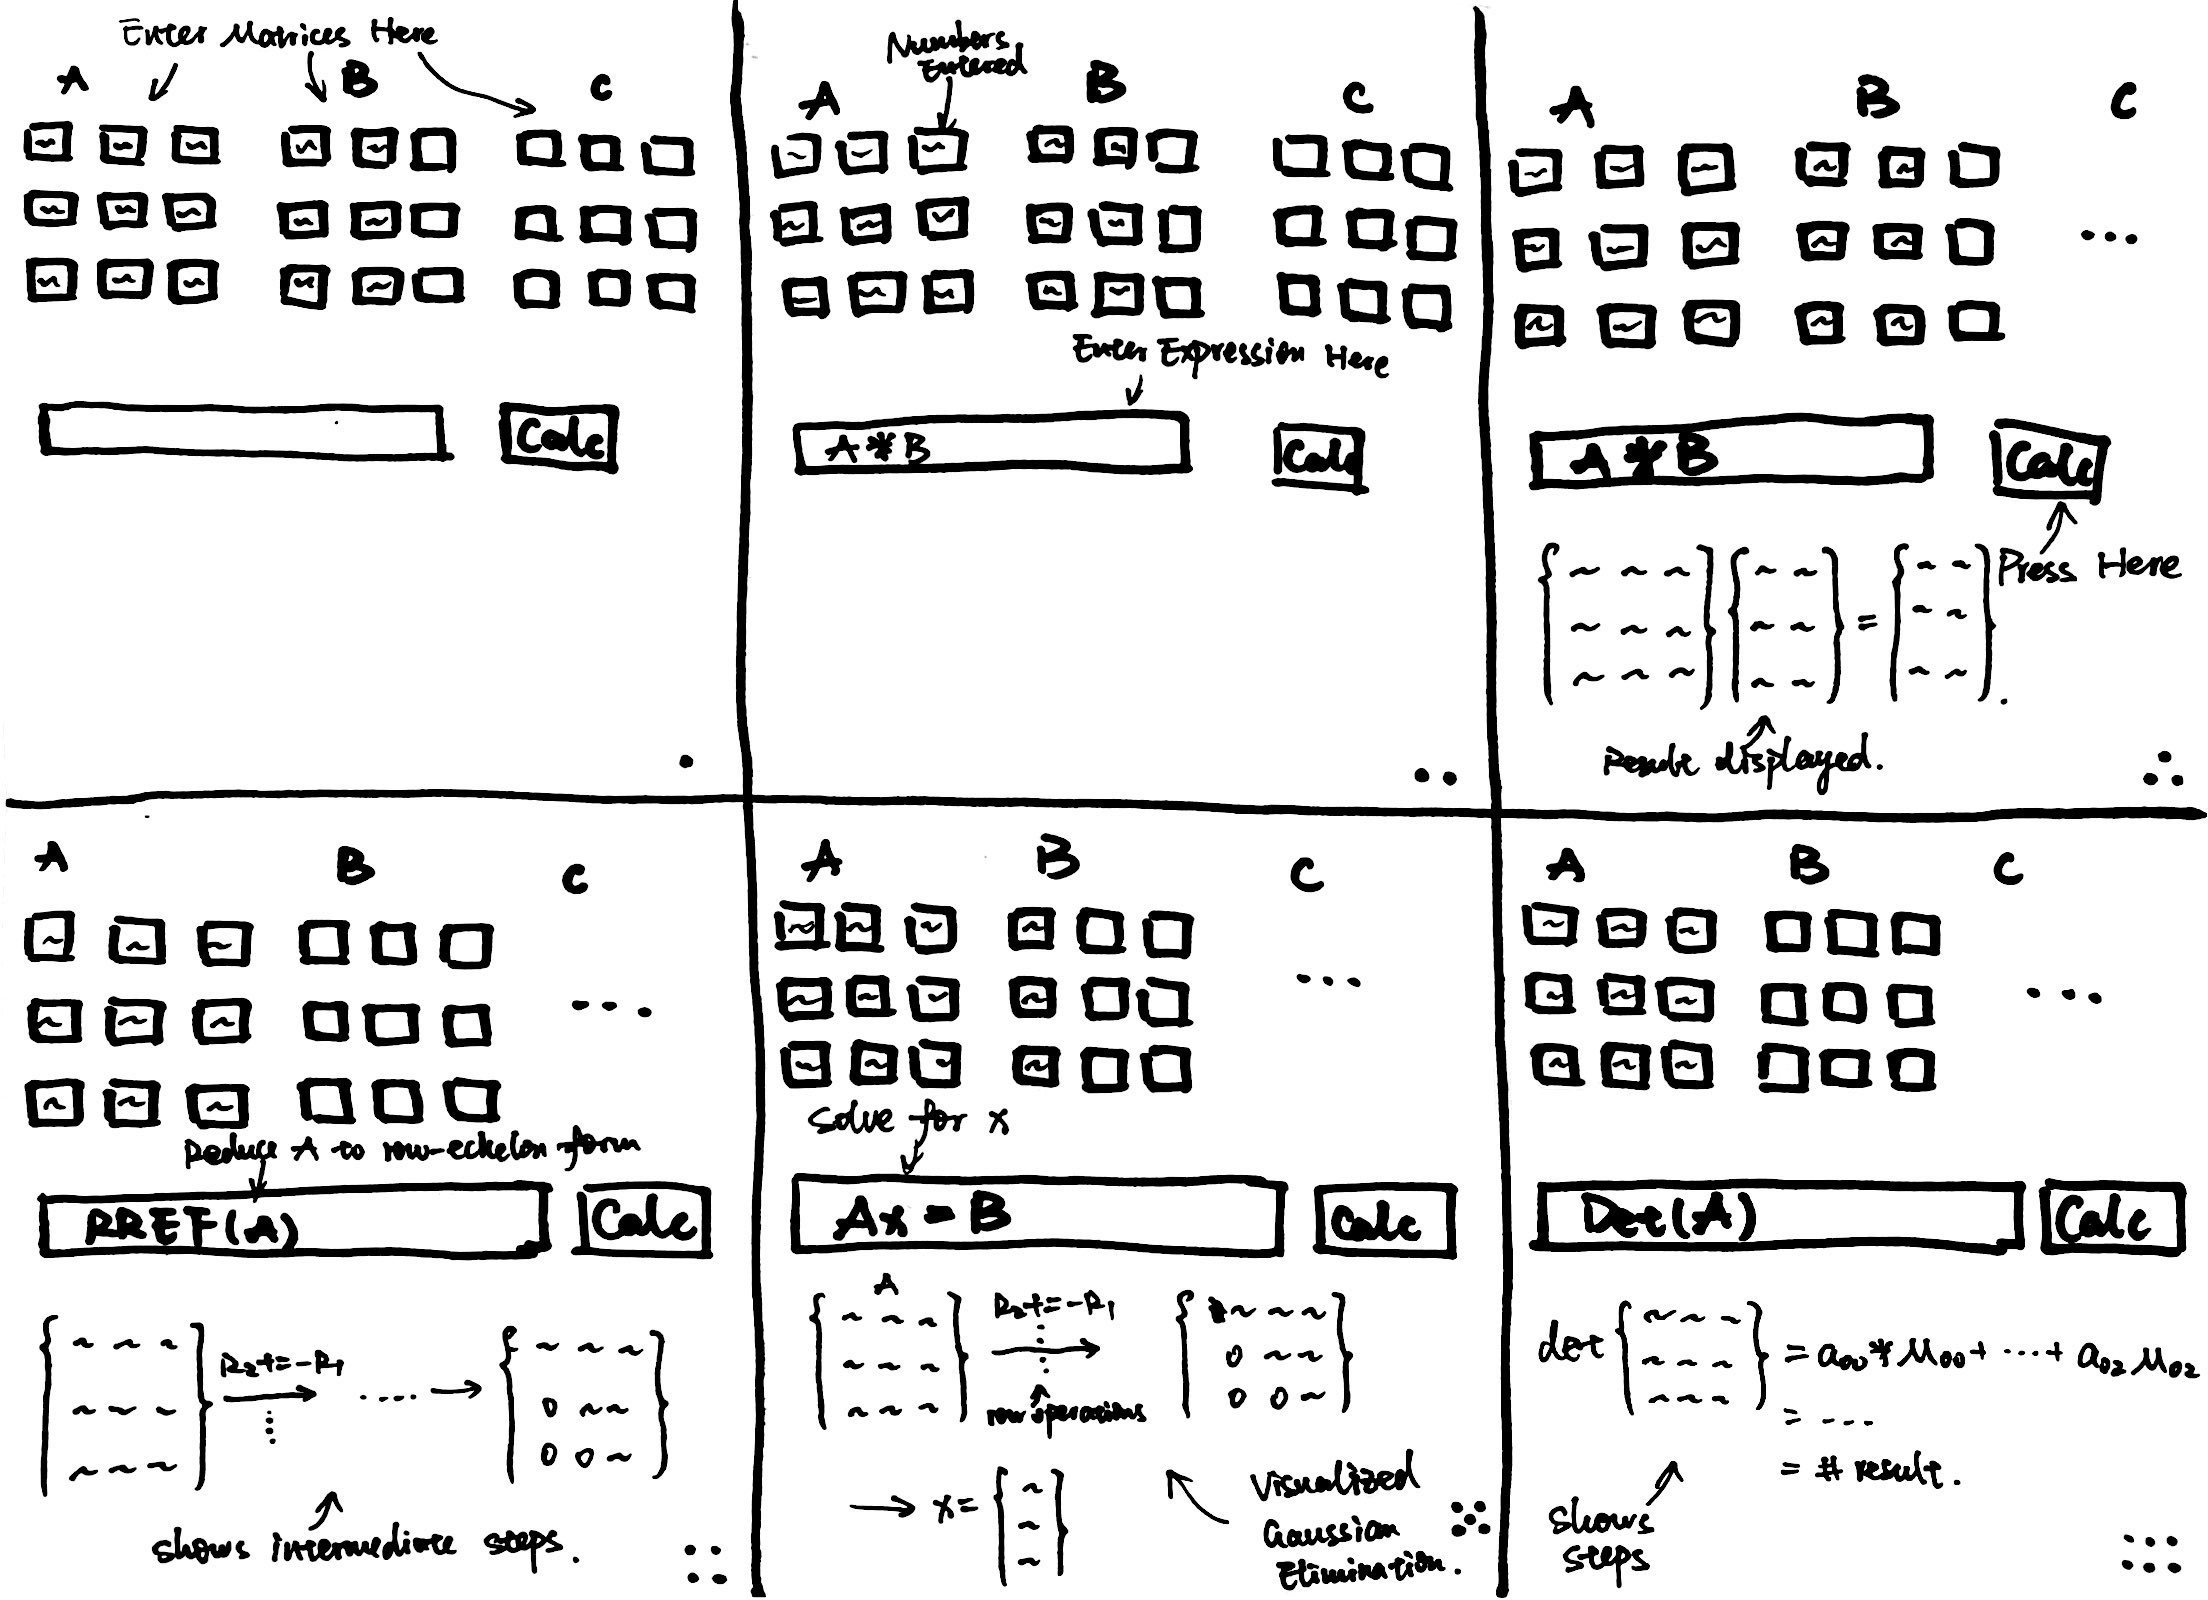 Enter Matrices Here
A B C
Calc
Numbers
Entered
A B C
Enter Expression Here
A * B
Calc
A B C
...
A * B
Calc
Press Here
{ ~ ~ ~ } { ~ ~ } = { ~ ~ }
~ ~ ~ ~ ~ ~ ~
~ ~ ~ ~ ~ ~ ~
Result displayed.
A B C
...
Reduce A to row-echelon form
RREF(A)
Calc
{ ~ ~ ~ } R2+=-R1 ..... → { ~ ~ ~ }
~ ~ ~ 0 ~ ~
~ ~ ~ 0 0 ~
shows intermediate steps.
A B C
...
Solve for x
Ax = B
Calc
A
{ ~ ~ ~ } R2+=-R1 { ~ ~ ~ }
~ ~ ~ → 0 ~ ~
~ ~ ~ row operations 0 0 ~
→ x = { ~ ~ ~ }
Visualized
Gaussian
Elimination.
A B C
...
Det(A)
Calc
det { ~ ~ ~ } = a00 * M00 + ... + a02 M02
= ...
= # result.
Shows
steps